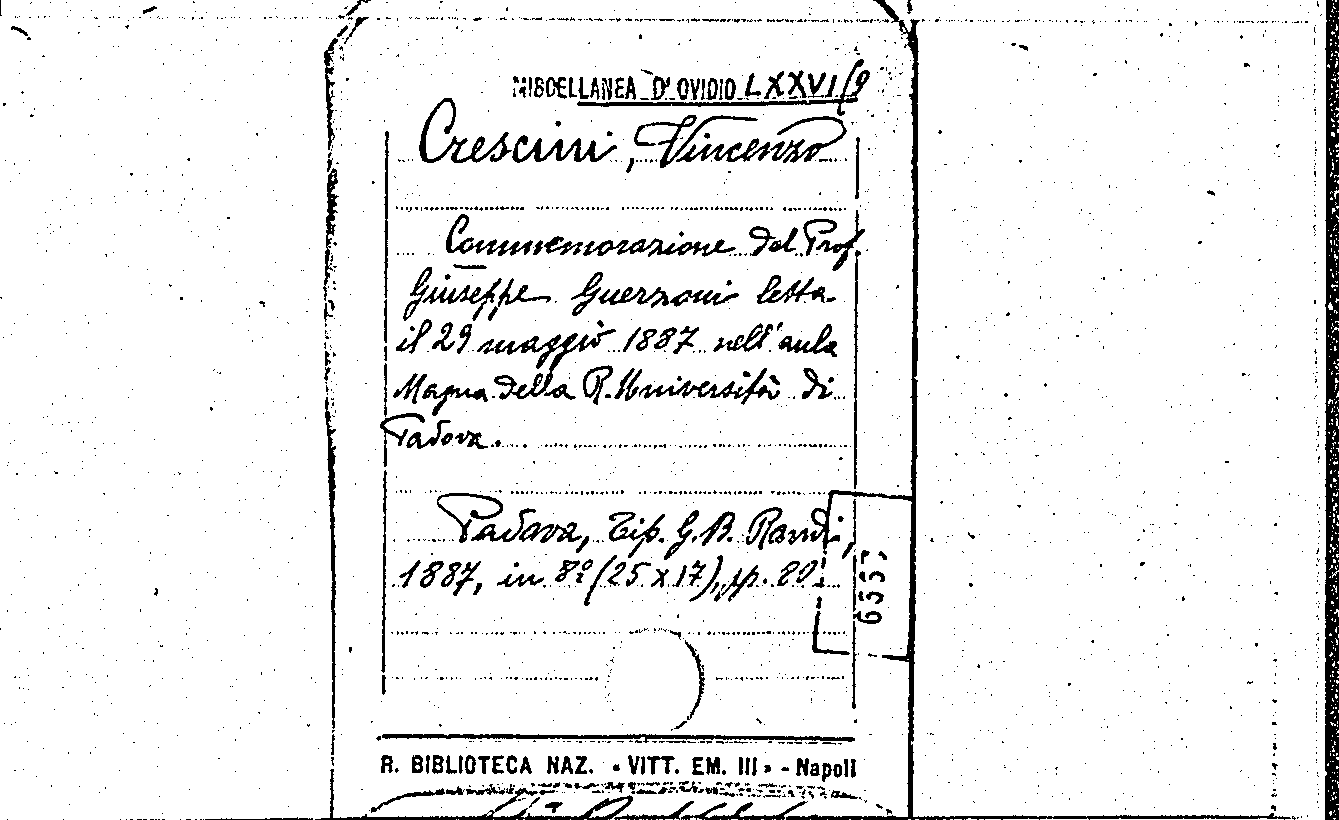 MISCELLANEA D'OVIDIO LXXVI/9
Crescini, Vincenzo
Commemorazione del Prof.
Giuseppe Guerzoni letta
il 29 maggio 1887 nell'aula
Magna della R. Università di
Padova.
Padova, Tip. G. B. Randi,
1887, in 8º (25 x 17), pp. 20.
6557
R. BIBLIOTECA NAZ. « VITT. EM. III » - Napoli